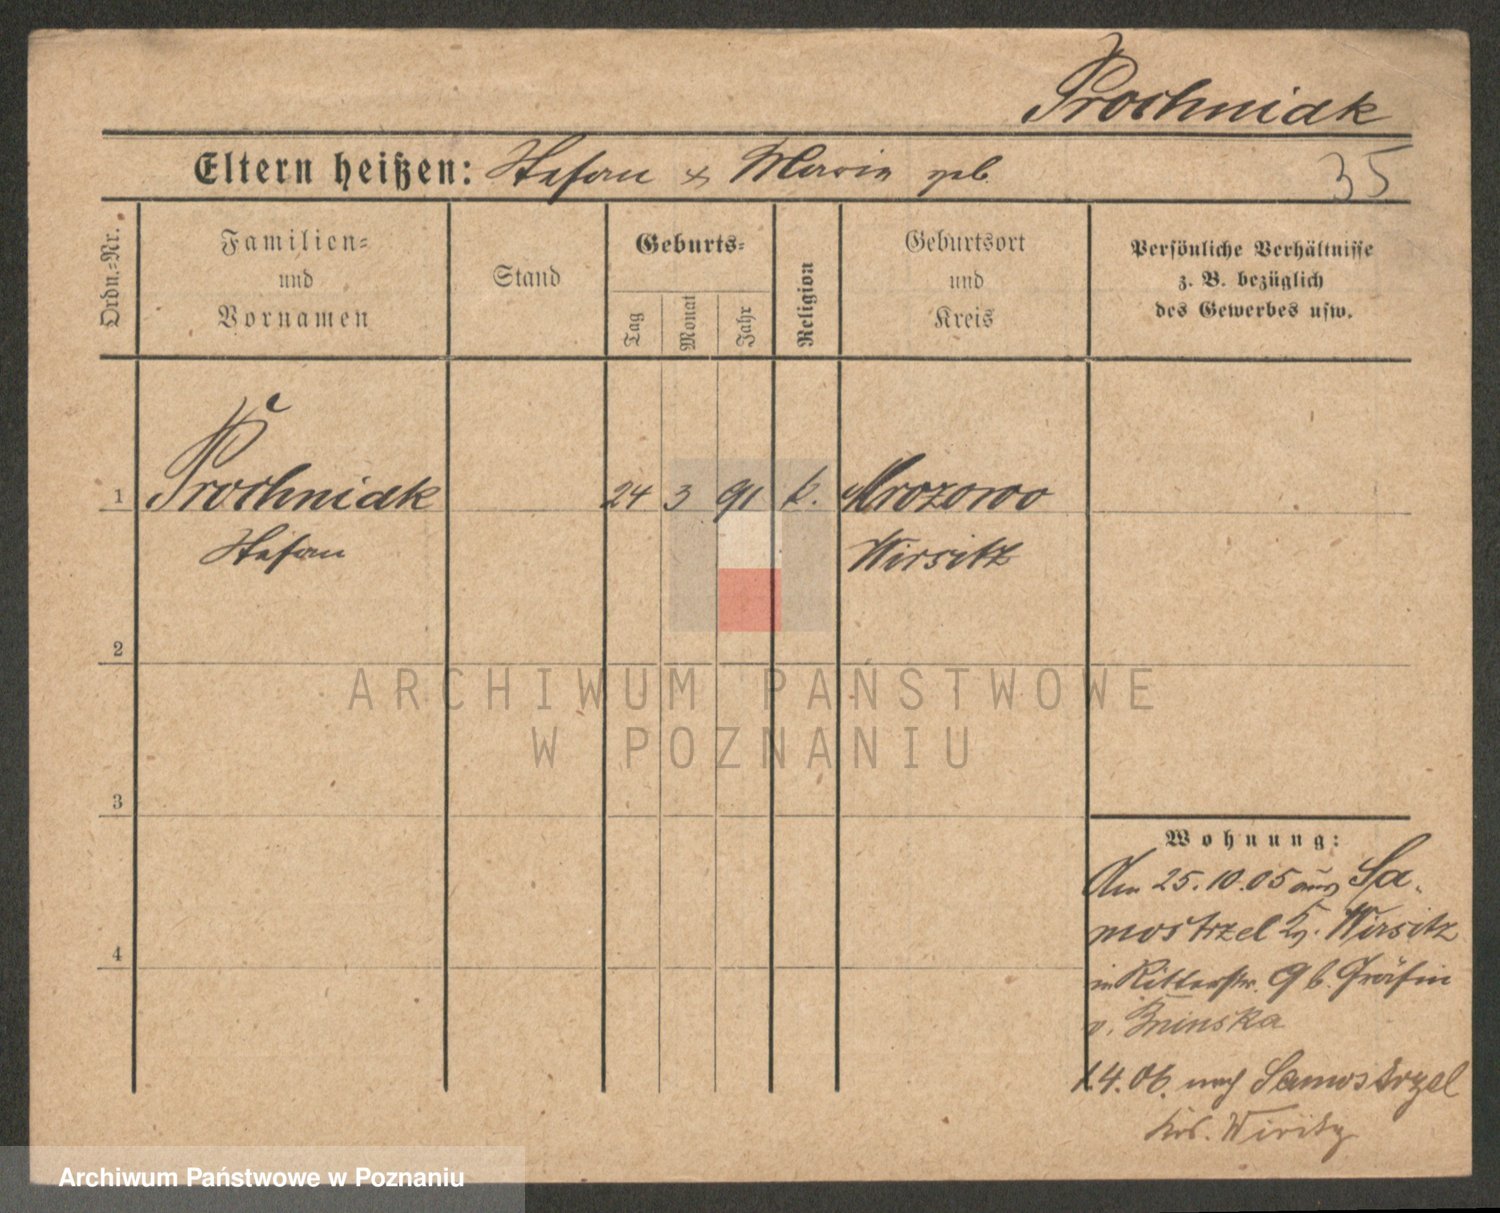 Prochniak
Eltern heißen: Stefan & Maria geb.
35
Ordn.=Nr.
Familien=
und
Vornamen
Stand
Geburts=
Tag
Monat
Jahr
Religion
Geburtsort
und
Kreis
Persönliche Verhältnisse
z. B. bezüglich
des Gewerbes usw.
1 Prochniak 24 3 91 k. Mrozowo
Stefan Wirsitz
2
ARCHIWUM PAŃSTWOWE
W POZNANIU
3
4
Wohnung:
Am 25.10.05 aus Sa-
mostrzel Kr. Wirsitz
in Ritterstr. 9 b. Gräfin
v.
1.4.06. nach Samostrzel
Krs.
Archiwum Państwowe w Poznaniu